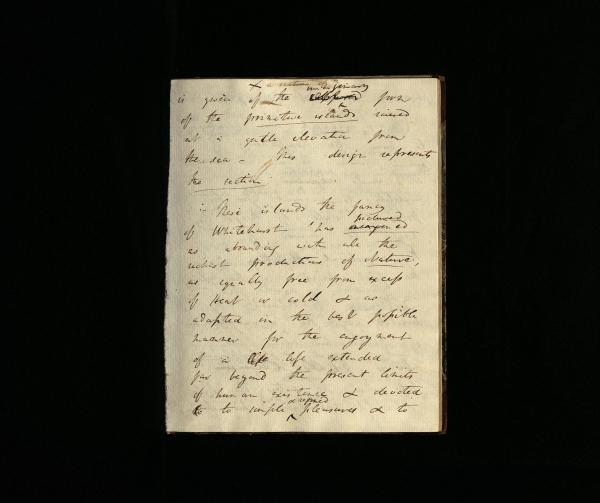 imaginary
is given of the form
of the primitive islands raised
at a gentle elevation from
the sea – This design represents
the section
These islands the fancy
pictured
of Whitehurst has
as abounding with all the
richest productions of Nature,
as equally free from excess
of Heat or cold & as
adapted in the best possible
manner for the enjoyment
of a life life extended
far beyond the present limits
of human existence & devoted
& refined
to to simple pleasures & to